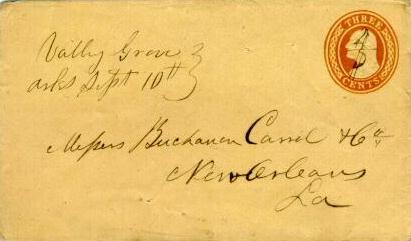 THREE
CENTS
Vally Grove
arks Sept 10th
Messrs Buchanan Carrol & Co
New Orleans
La